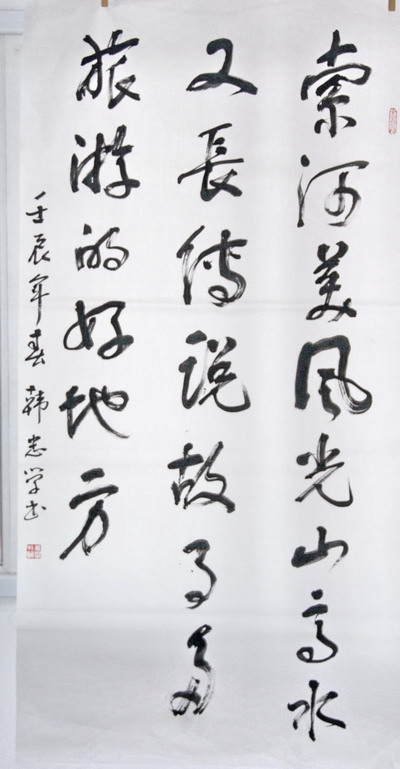 索河美风光山高水
又長传说故事多
旅游的好地方
壬辰年春韩忠学书